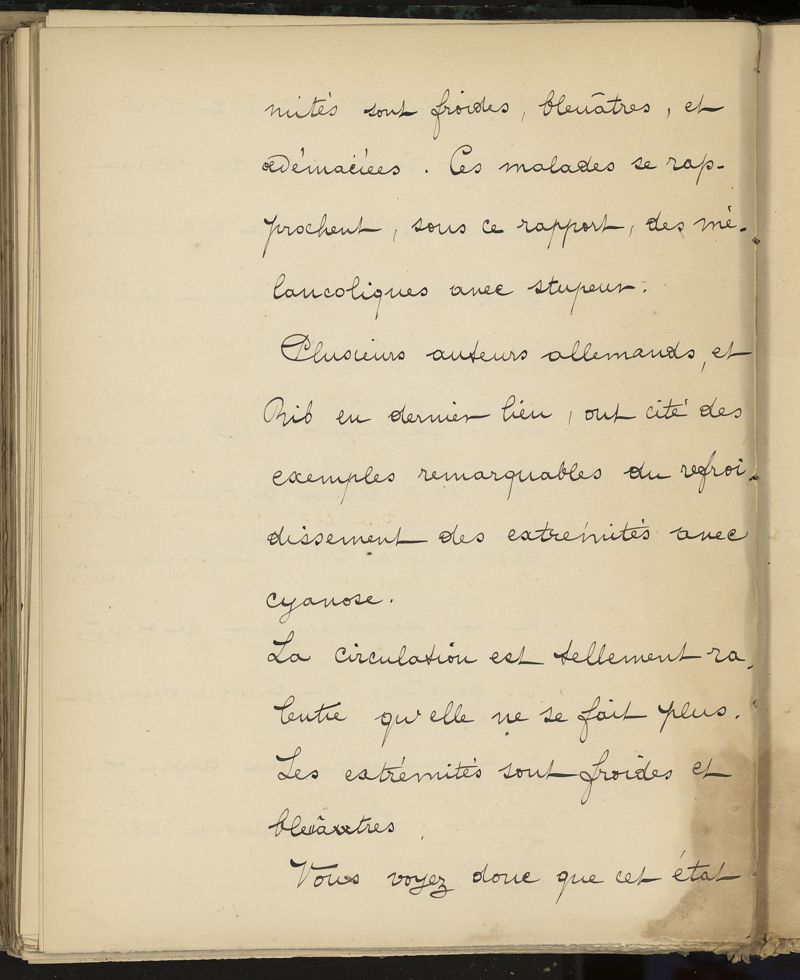 mités sont froides, bleuâtres, et
œdémaciées. Ces malades se rap-
prochent, sous ce rapport, des mé-
lancoliques avec stupeur.
Plusieurs auteurs allemands, et
Rib en dernier lieu, ont cité des
exemples remarquables du refroi-
dissement des extrémités avec
cyanose.
La circulation est tellement ra-
lentie qu'elle ne se fait plus.
Les extrémités sont froides et
bleuâtres.
Vous voyez donc que cet état